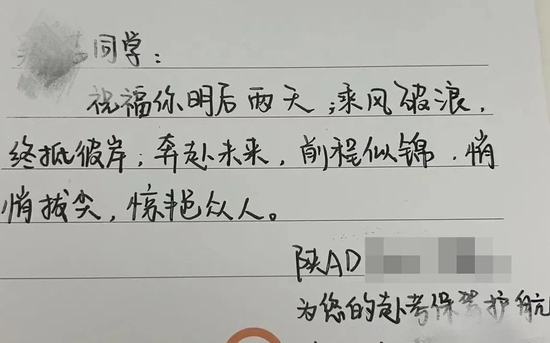 同学：
祝福你明后两天，乘风破浪，
终抵彼岸；奔赴未来，前程似锦．悄
悄拔尖，惊艳众人。
陕AD
为您的赴考保驾护航